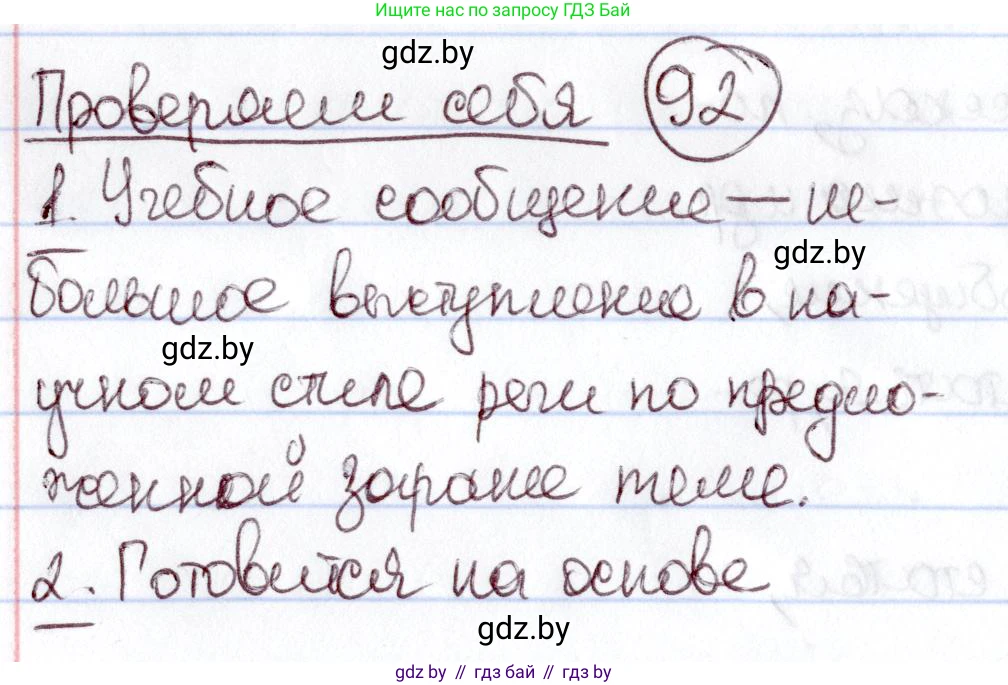 Ищите нас по запросу ГДЗ Бай
gdz.by
Проверяем себя 92
1. Учебное сообщение — не-
gdz.by
большое выступление в на-
gdz.by
учном стиле речи по предло-
женной заранее теме.
2. Готовится на основе
gdz.by
gdz.by // гдз бай // гдз by